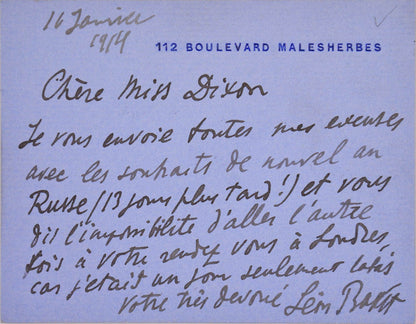 16 Janvier
1914
112 BOULEVARD MALESHERBES
Chère Miss Dixon
Je vous envoie toutes mes excuses
avec les souhaits de nouvel an
Russe (13 jours plus tard!) et vous
dis l'impossibilité d'aller l'autre
fois à votre rendez vous à Londres,
car j'étais un jour seulement
votre très devoué Léon Bakst